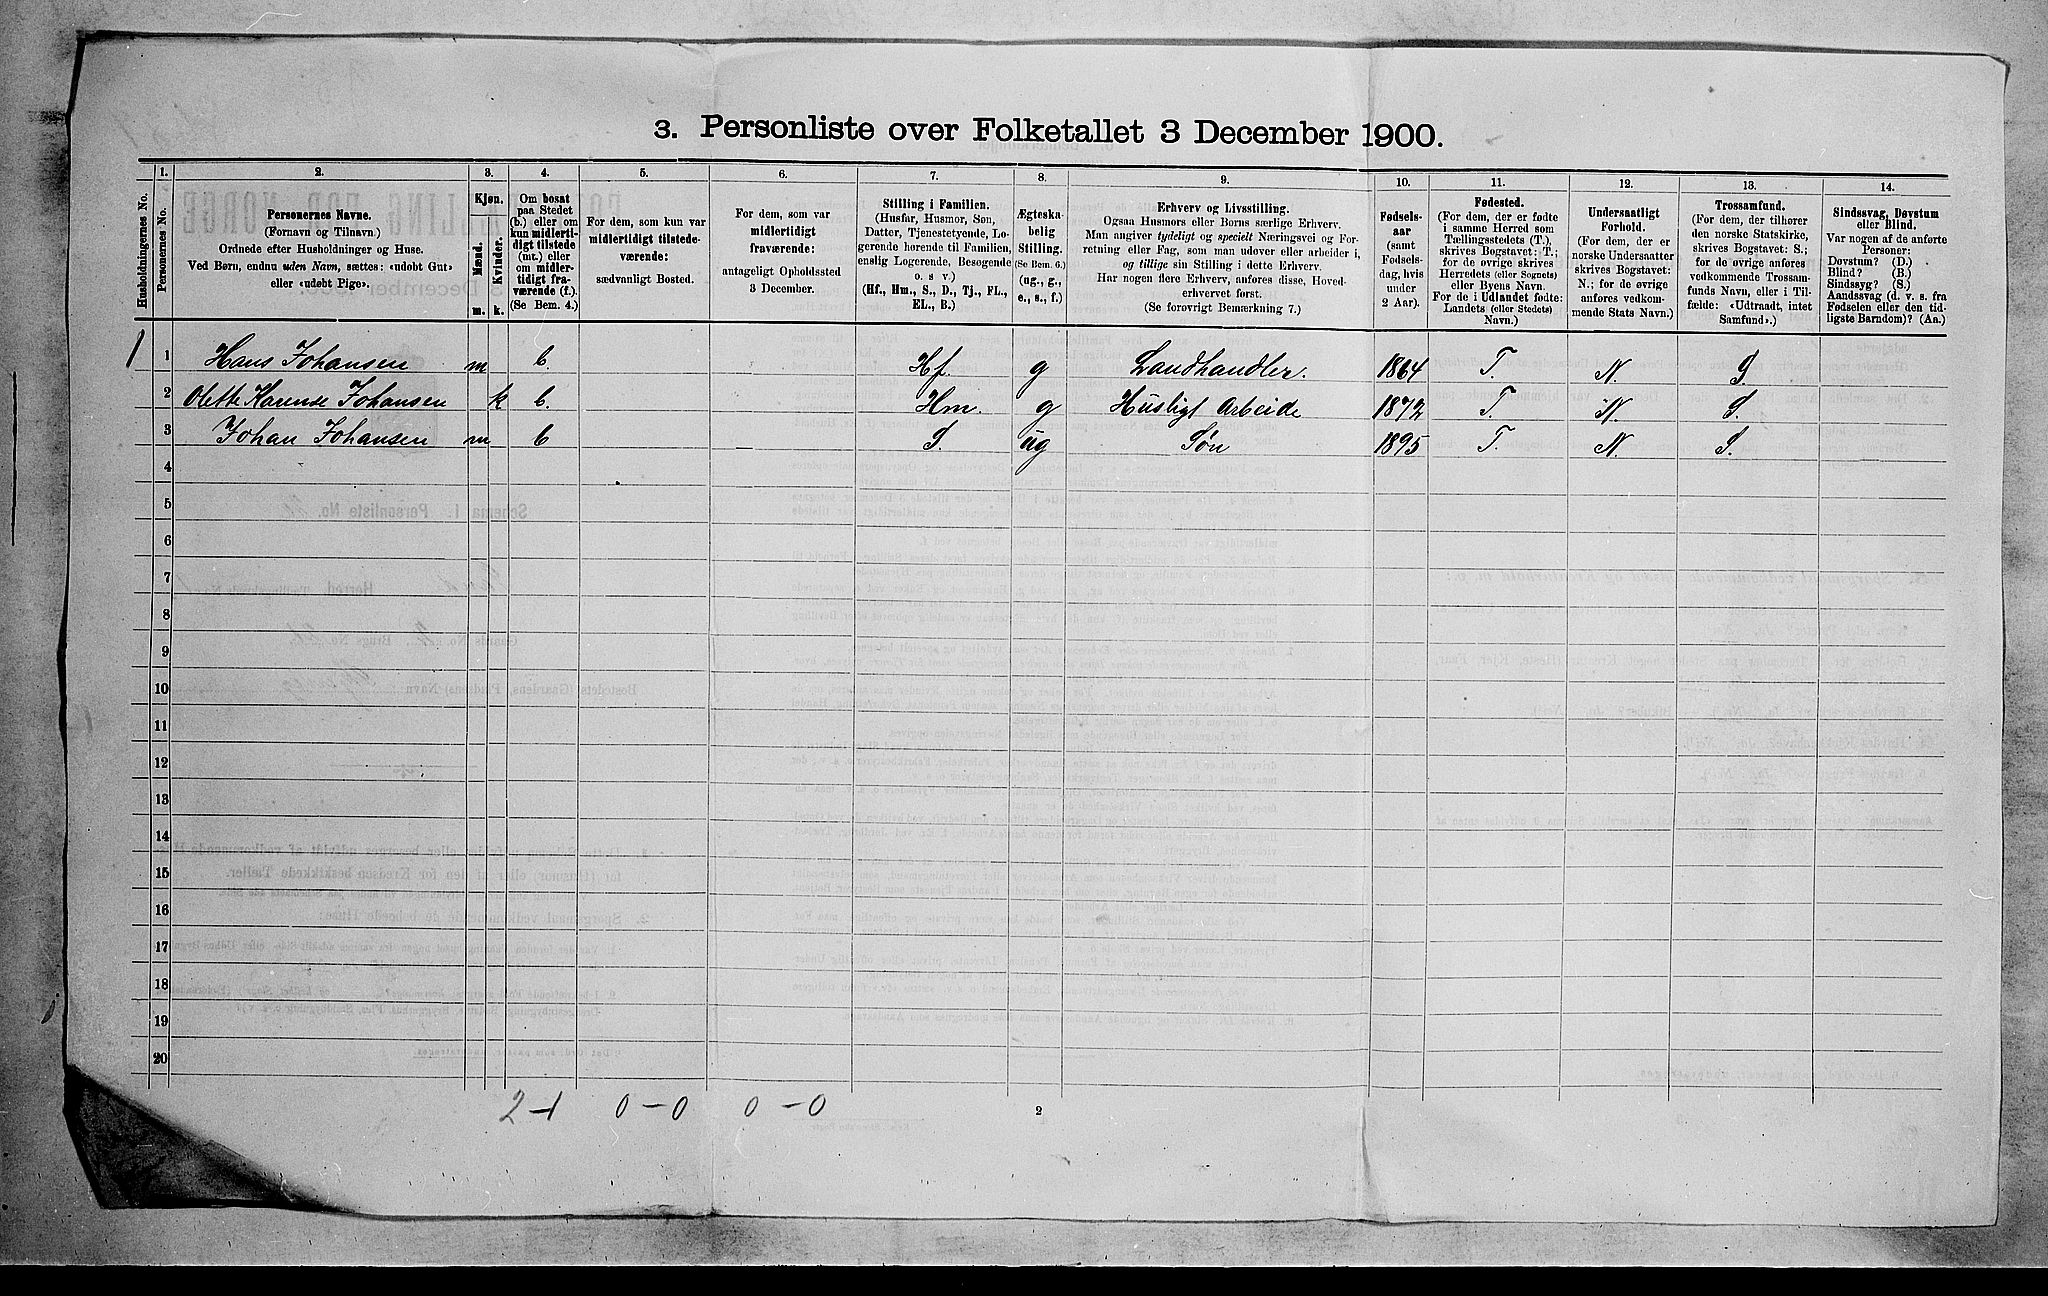 3. Personliste over Folketallet 3 December 1900.
Husholdningernes No.
1.
Personernes No.
2.
Personernes Navne.
(Fornavn og Tilnavn.)
Ordnede efter Husholdninger og Huse.
Ved Børn, endnu uden Navn, sættes: «udøbt Gut»
eller «udøbt Pige».
3.
Kjøn.
Mænd.
Kvinder.
m.
k.
4.
Om bosat
paa Stedet
(b.) eller om
kun midlerti-
digt tilstede
(mt.) eller
om midler-
tidigt fra-
værende (f.).
(Se Bem. 4.)
5.
For dem, som kun var
midlertidigt tilstede-
værende:
sædvanligt Bosted.
6.
For dem, som var
midlertidigt
fraværende:
antageligt Opholdssted
3 December.
7.
Stilling i Familien.
(Husfar, Husmor, Søn,
Datter, Tjenestetyende, Lo-
gerende hørende til Familien,
enslig Logerende, Besøgende
o. s v.)
(Hf., Hm., S., D., Tj., FL.,
EL., B.)
8.
Ægteska-
belig
Stilling.
(Se Bem. 6.)
(ug., g.,
e., s., f.)
9.
Erhverv og Livsstilling.
Ogsaa Husmors eller Børns særlige Erhverv.
Man angiver tydeligt og specielt Næringsvei og For-
retning eller Fag, som man udøver eller arbeider i,
og tillige sin Stilling i dette Erhverv.
Har nogen flere Erhverv, anføres disse, Hoved-
erhvervet først.
(Se forøvrigt Bemærkning 7.)
10.
Fødsels-
aar
(samt
Fødsels-
dag, hvis
under
2 Aar).
11.
Fødested.
(For dem, der er fødte
i samme Herred som
Tællingsstedets (T.),
skrives Bogstavet: T.;
for de øvrige skrives
Herredets (eller Sognets)
eller Byens Navn.
For de i Udlandet fødte:
Landets (eller Stedets)
Navn.)
12.
Undersaatligt
Forhold.
(For dem, der er
norske Undersaatter
skrives Bogstavet:
N.; for de øvrige
anføres vedkom-
mende Stats Navn.)
13.
Trossamfund.
(For dem, der tilhører
den norske Statskirke,
skrives Bogstavet: S.;
for de øvrige anføres
vedkommende Trossam-
funds Navn, eller i Til-
fælde: «Udtraadt, intet
Samfund».)
14.
Sindssvag, Døvstum
eller Blind.
Var nogen af de anførte
Personer:
Døvstum? (D.)
Blind? (B.)
Sindssyg? (S.)
Aandssvag (d. v. s. fra
Fødselen eller den tid-
ligste Barndom)? (Aa.)
1 1 Hans Johansen m b. Hf. g Landhandler. 1864 T. N. S
2 Olette Karense Johansen k b. Hm. g Husligt Arbeide 1872 T. N. S.
3 Johan Johansen m b S. ug Søn 1895 T. N. S.
4
5
6
7
8
9
10
11
12
13
14
15
16
17
18
19
20
2-1 0-0 0-0
2